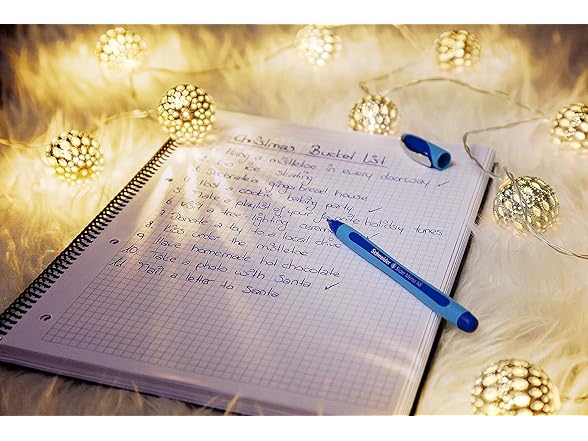 Christmas Bucket List
1. Hang a mistletoe in every doorway ✓
2. Go ice skating
3. Decorate gingerbread house
4. Host a cookie baking party ✓
5. Make a playlist of your favorite holiday tunes
6. Visit a tree lighting
7. Donate a toy to a local drive
8. Kiss under the mistletoe
9. Have homemade hot chocolate
10. Take a photo with Santa ✓
11. Mail a letter to Santa
Schneider Slider Memo XB